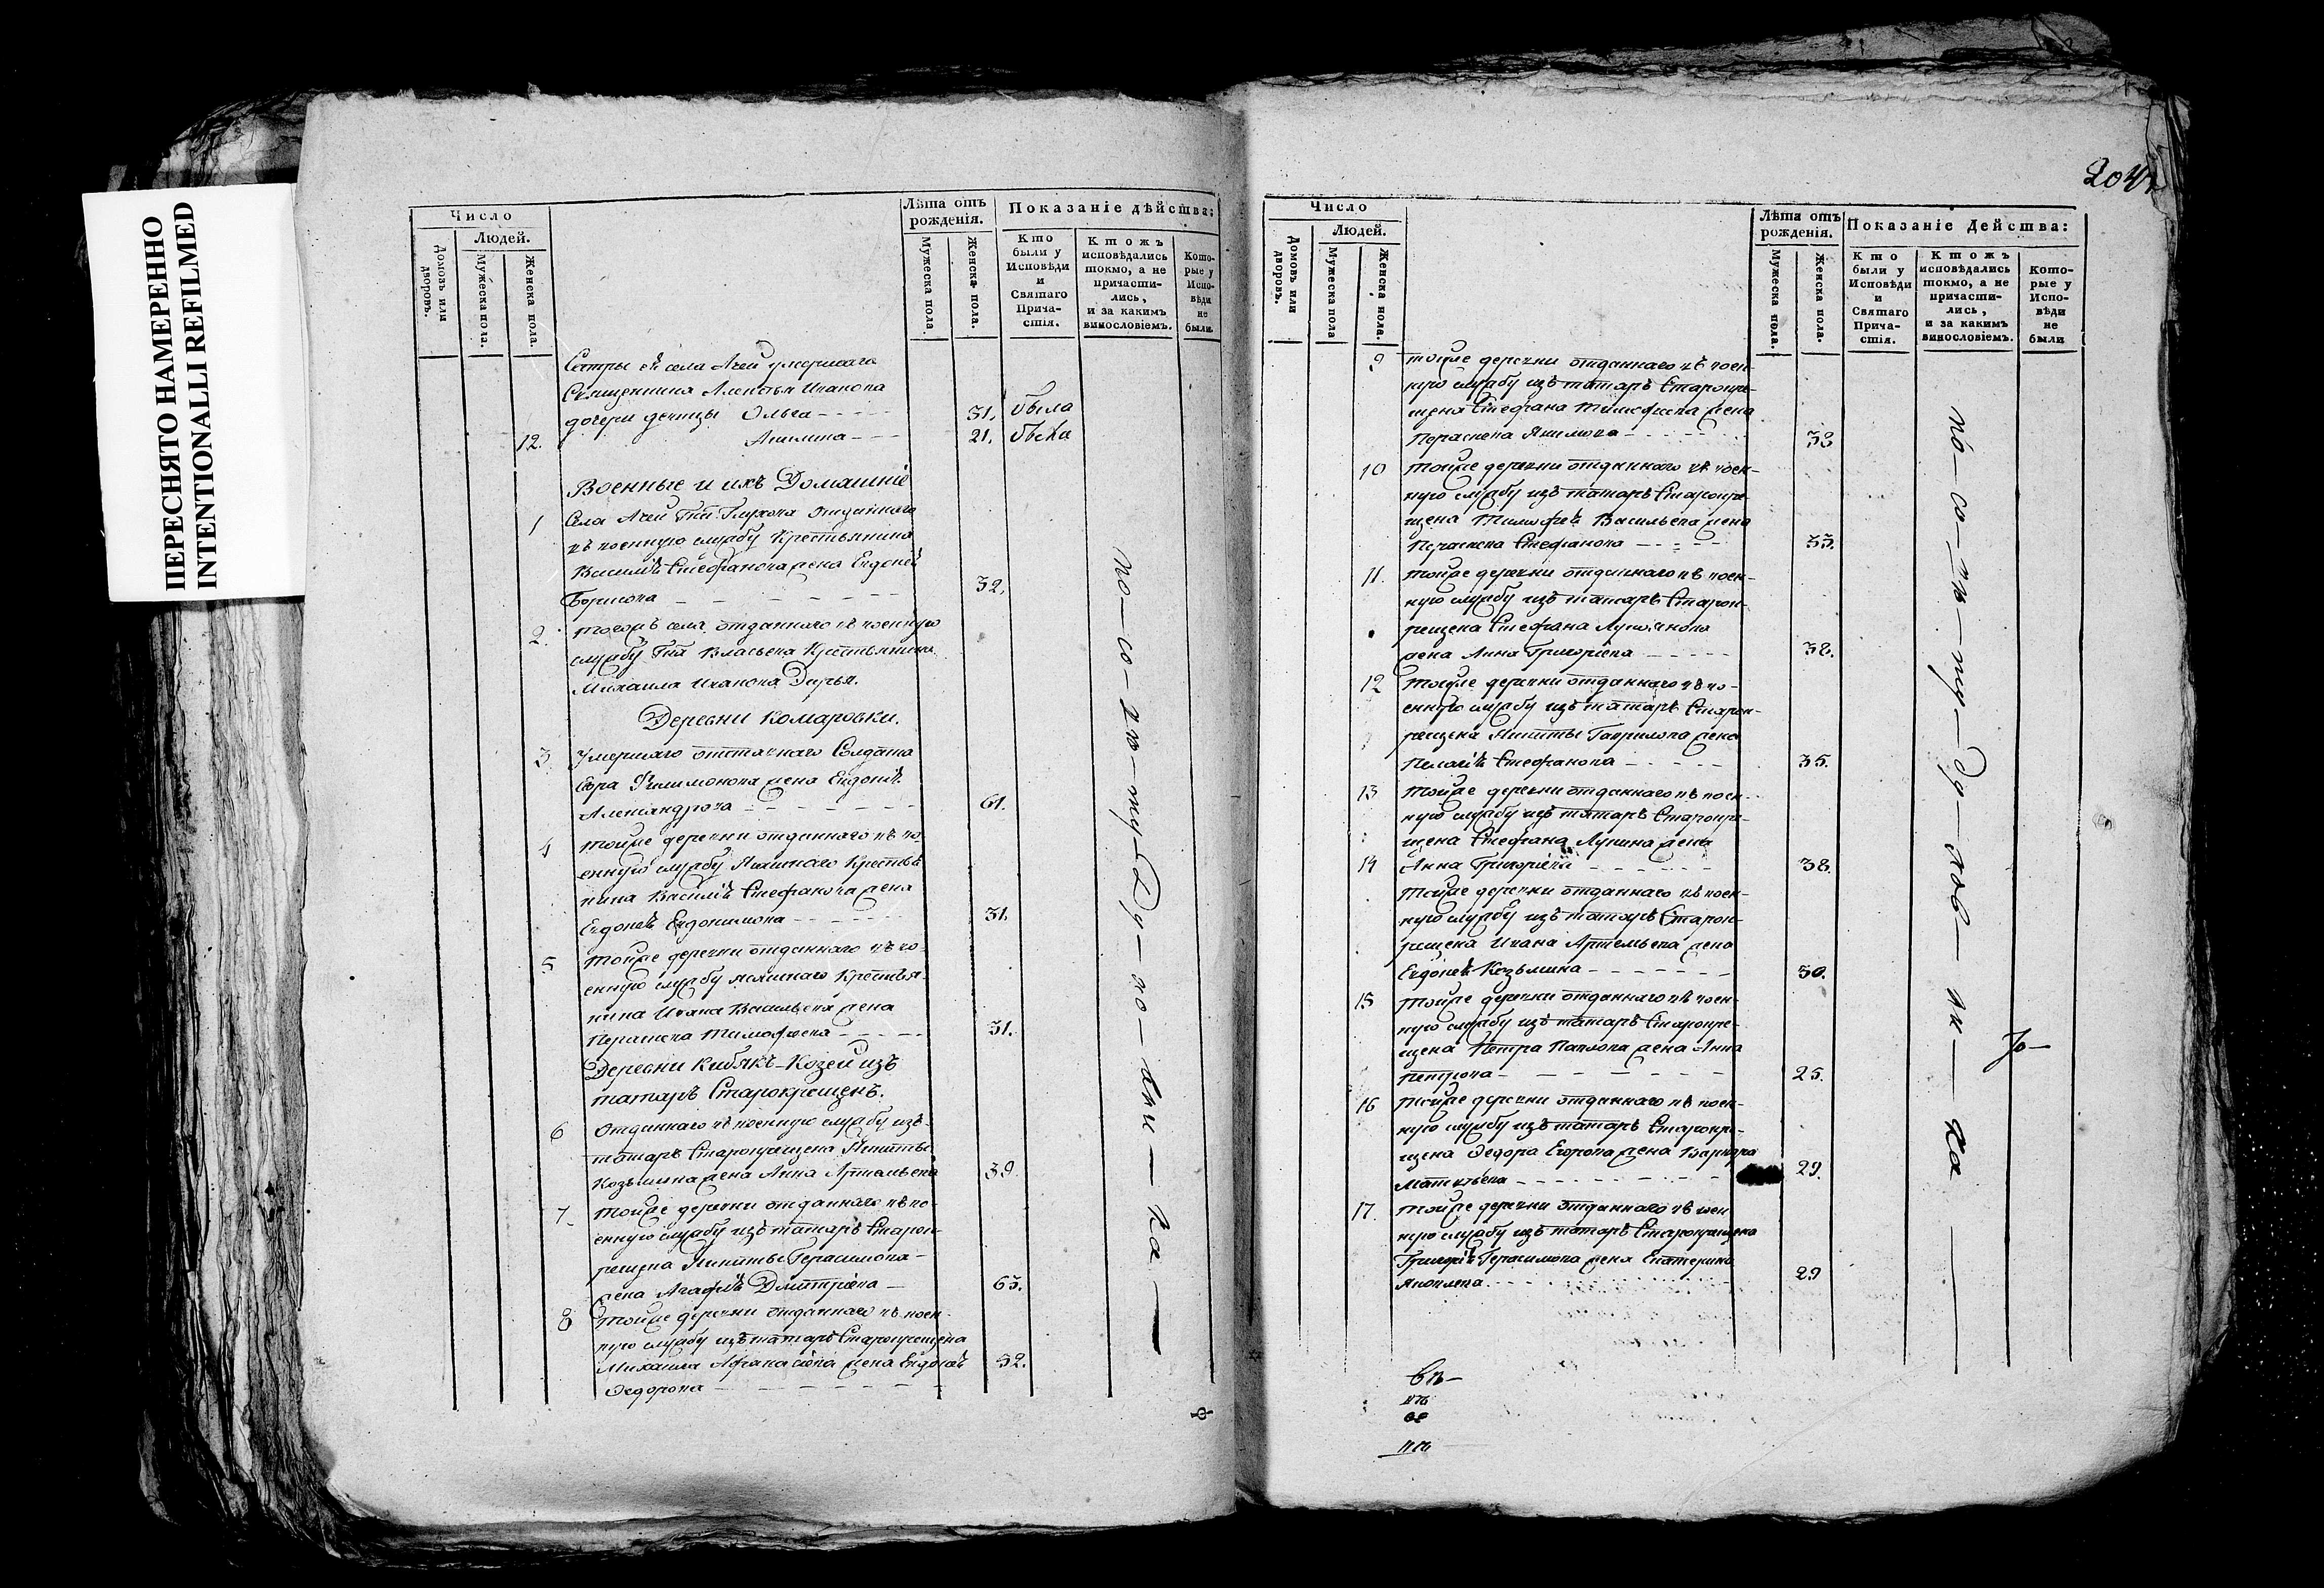 ПЕРЕСНЯТО НАМЕРЕННО
INTENTIONALLI REFILMED
204
Число
Людей.
Домовъ или дворовъ.
Мужеска пола.
Женска пола.
Лѣта отъ рожденія.
Мужеска пола.
Женска пола.
Показаніе дѣйства:
Кто были у Исповѣди и Святаго Прича-стія.
Ктожъ исповѣдались токмо, а не причасти-лись, и за какимъ винословіемъ.
Кото-рые у Испо-вѣди не были.
села Ачей умершаго
Священника Алексѣя Иванова
дочери девицы Ольга 31. была
12. Акилина 21. была
Военные и ихъ Домашніе
1 Села Ачей отданнаго
въ военную службу Крестьянина
Василія Стефанова жена Евдокія
Борисова 32.
2. тогожъ села отданнаго въ военную
службу Власьева Крестьянина
Михаила Иванова Дарья.
Деревни Комаровки.
3 Умершаго отставнаго Солдата
жена Евдокія
Александрова 61.
4 тойже деревни отданнаго въ во-
енную службу Ясашнаго Крестья
нина Василія Стефанова жена
Евдокія Евдокимова 31.
5 тойже деревни отданнаго въ во-
енную службу ясашнаго Крестья-
нина Ивана Васильева жена
Тимофеева 31.
Деревни Кибякъ-Козей изъ
татаръ Старокрещенъ.
6 Отданнаго въ военную службу изъ
татаръ Старокрещена Никиты
Козьмина жена Анна Артемьева 39.
7. тойже деревни отданнаго въ во-
енную службу изъ татаръ Старок-
рещена Никиты Герасимова
жена Агафія Дмитріева 63.
8 тойже деревни отданнаго въ воен-
ную службу изъ татаръ Старокрещена
Михаила Афанасіева жена Евдокія 52.
Ѳедорова
Число
Людей.
Домовъ или дворовъ.
Мужеска пола
Женска пола.
Лѣта отъ рожденія.
Мужеска пола.
Женска пола.
Показаніе Действа:
Кто были у Исповѣди и Святаго Прича-стія.
Ктожъ исповѣдались токмо, а не причасти-лись, и за какимъ винословіемъ.
Кото-рые у Испо-вѣди не были
9 тойже деревни отданнаго въ воен-
ную службу изъ татаръ Старокре-
щена Стефана Тимофеева жена
Параскева Якимова
10 тойже деревни отданнаго въ воен-
ную службу изъ татаръ Старокре-
щена Тимофея Васильева жена
Параскева Стефанова
11. тойже деревни отданнаго въ воен-
ную службу изъ татаръ Старок-
рещена Стефана Лукіянова
жена Анна Григоріева 38.
12 тойже деревни отданнаго въ во-
енную службу изъ татаръ Старок-
рещена Никиты Гаврилова жена
Пелагія Стефанова 35.
13 тойже деревни отданнаго въ воен-
ную службу изъ татаръ Старокре-
щена Стефана Лукина жена
14 Анна Григоріева 38.
тойже деревни отданнаго въ воен-
ную службу изъ татаръ Старок-
рещена Ивана Артемьева жена
Евдокія Козьмина 50.
15 тойже деревни отданнаго въ воен-
ную службу изъ татаръ Старокре-
щена Петра Павлова жена Анна
Петрова 25.
16 тойже деревни отданнаго въ воен-
ную службу изъ татаръ Старокре-
щена Ѳедора Егорова жена Варвара
Матвѣева 29.
17. тойже деревни отданнаго въ воен
ную службу изъ татаръ Старокрещена
Григорія Герасимова жена Екатерина
Яковлева 29